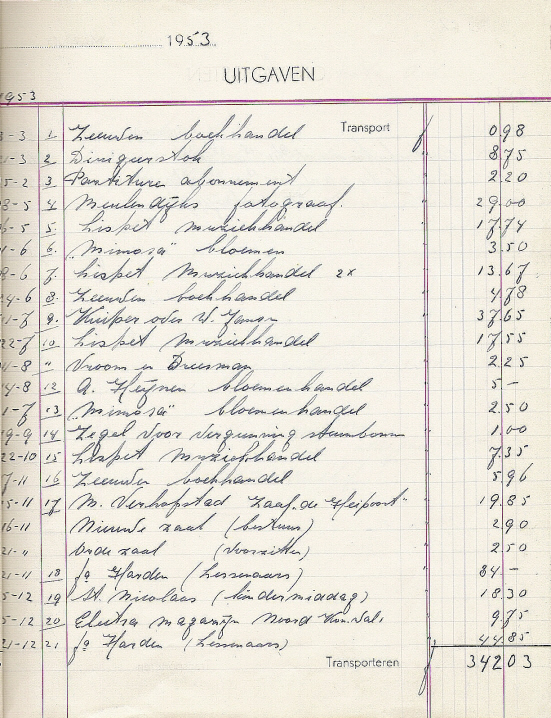 1953.
UITGAVEN
1953
Transport
3-3 1. Zeeuwen boekhandel f 0 98
-3 2 Dirigeerstok " 8 75
5-2 3 Partituren abonnement " 2 20
8-5 4 Meulendijks fotograaf. " 29 00
6-5 5 Lispet muziekhandel " 17 74
-6 6. "Mimosa" bloemen " 3.50
8-6 7. Lispet Muziekhandel 2x " 13.67
14-6 8. Zeeuwen boekhandel " 4 78
1-7 9. Kuiper oder W. Jansen " 37 65
22-7 10 Lispet Muziekhandel " 17 55
4-8 " Vroom en Dreesman " 2 25
14-8 12 A. Heijnen bloemenhandel " 5 -
1-7 13 "Mimosa" bloemenhandel " 2 50
9-9 14 Zegel voor vergunning " 1.00
22-10 15 Lispet Muziekhandel " 7.35
7-11 16 Zeeuwen boekhandel " 5 96
5-11 17 M. Verhofstad Zaal de Heipoort" " 19.85
16-11 Nieuwe zaal (bestuur) " 2 90
21-" Oude zaal (voorzitter) " 2 50
21-11 18 fa Harden (Lessenaars) " 84 -
5-12 19 St. Nicolaas (kindermiddag) " 18.30
5-12 20 Electra magazijn Noord " 9.75
21-12 21 fa Harden (Lessenaars) " 44 85
Transporteren f 342 03